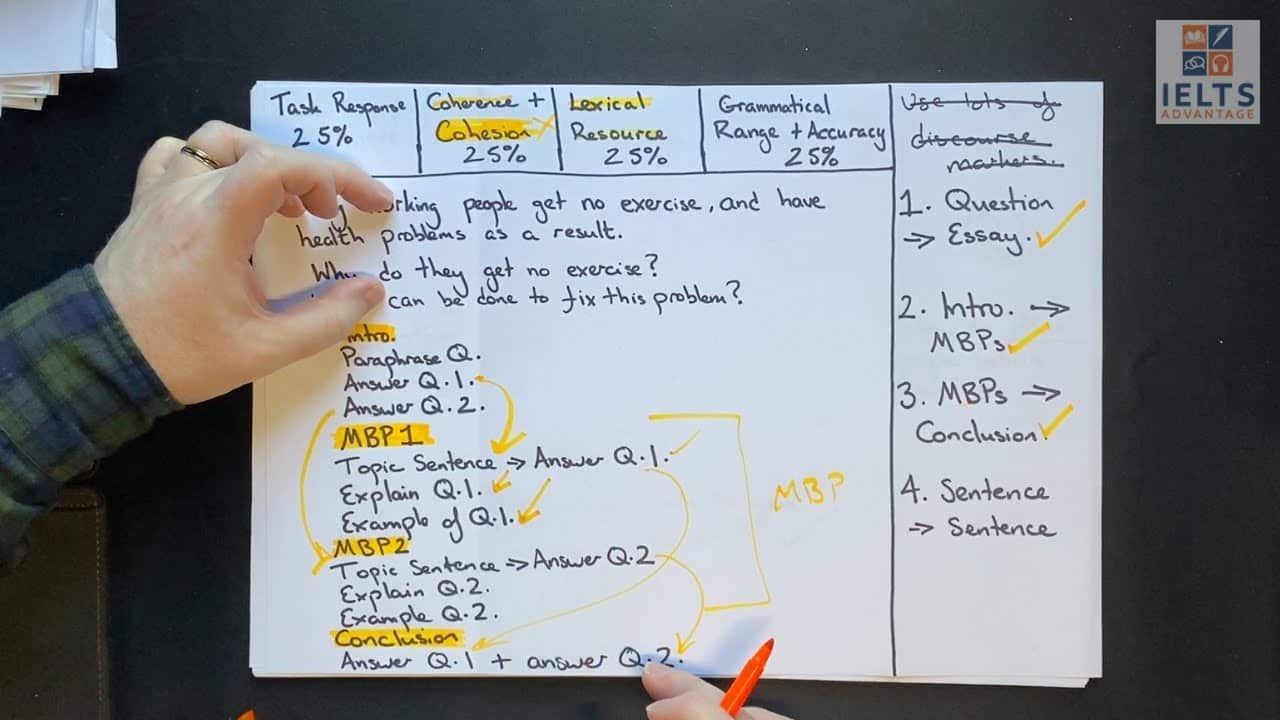 IELTS
ADVANTAGE
Task Response
25%
Coherence +
Cohesion
25%
Lexical
Resource
25%
Grammatical
Range + Accuracy
25%
Use lots of
discourse
markers.
people get no exercise, and have
health problems as a result.
Why do they get no exercise?
can be done to fix this problem?
Intro.
Paraphrase Q.
Answer Q.1.
Answer Q.2.
MBP1
Topic Sentence => Answer Q.1.
Explain Q.1.
Example of Q.1.
MBP2
Topic Sentence => Answer Q.2
Explain Q.2.
Example Q.2.
Conclusion
Answer Q.1 + answer Q.2.
MBP
1. Question
=> Essay.
2. Intro. =>
MBPs
3. MBPs =>
Conclusion.
4. Sentence
=> Sentence